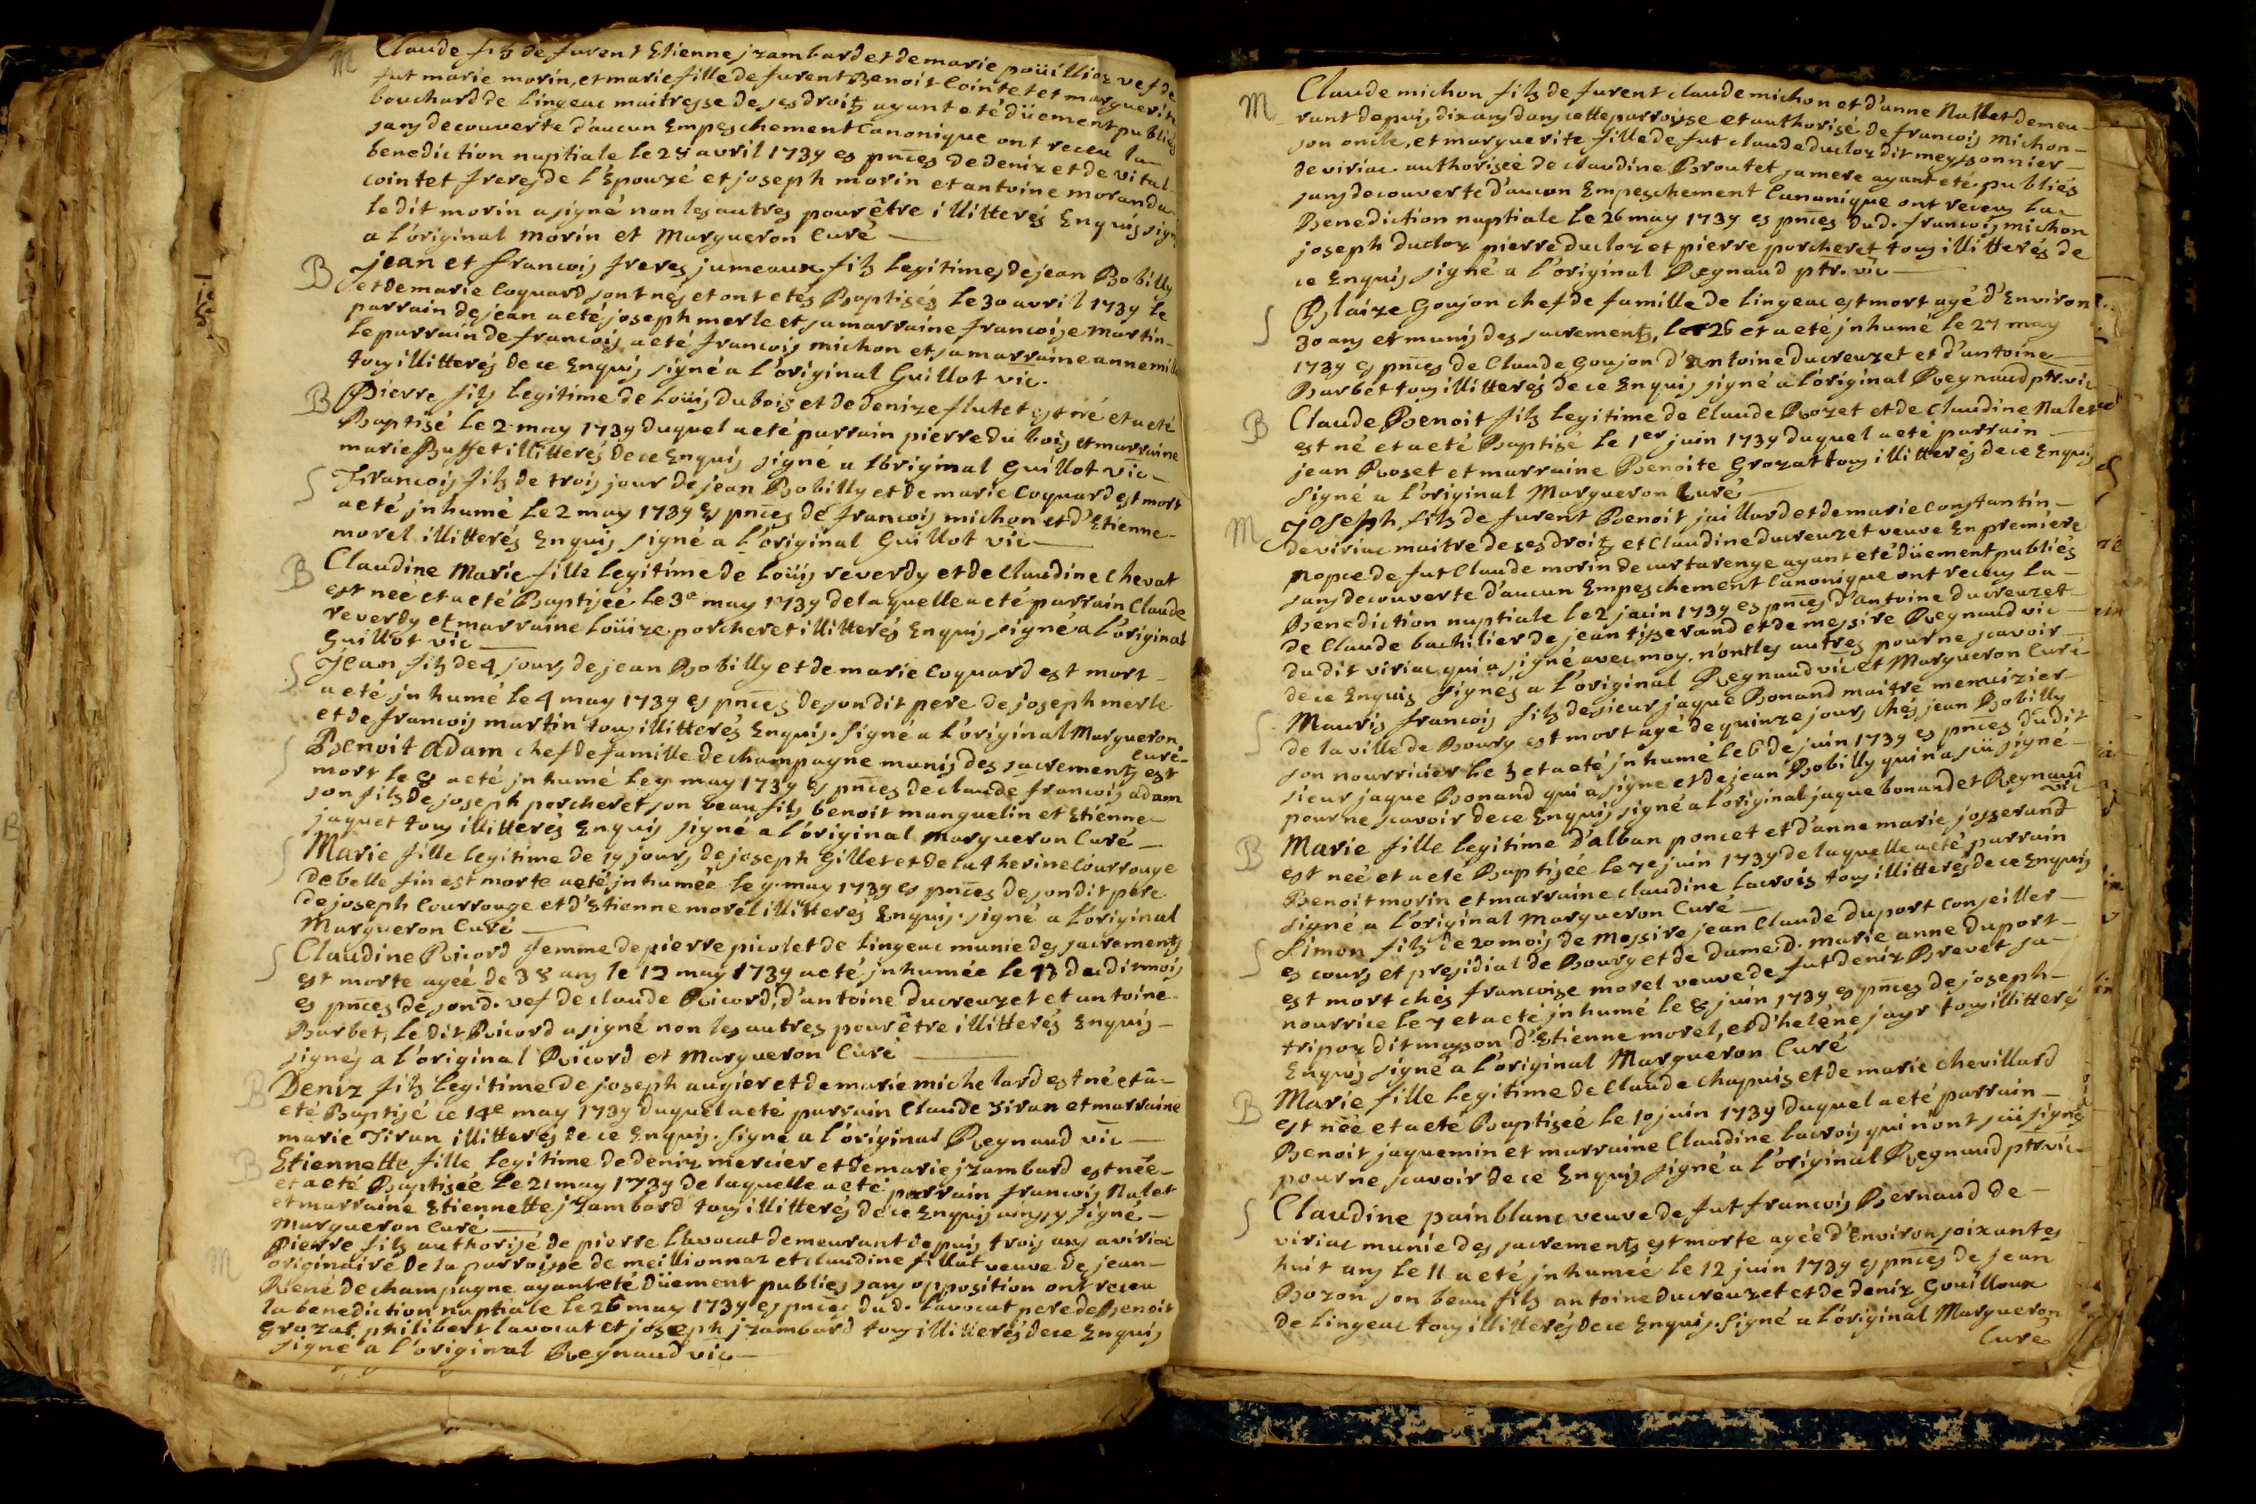 M Claude filz de furent Etienne jzambard et de marie poüillioz vef de
fut marie morin, et marie fille de furent Benoit Cointet et marguerite
bouchard de Lingeac maitresse de ses droitz ayant eté düement publiés
sans decouverte d'aucun Empeschement Canonique ont receu la
benediction nuptiale le 28 avril 1739 es pnces de deniz et de vital
cointet freres de l'Epouzé et joseph morin et antoine morandu
le dit morin a signé non les autres pour être illitterés Enquis signé
a l'original morin et Margueron Curé
B jean et francois freres jumeaux filz legitimes de jean Bobilly
et de marie Coquard sont nés et ont etés Baptisés le 30 avril 1739 le
parrain de jean a eté joseph merle et sa marraine francoize martin
le parrain de francois a eté francois michon et sa marraine anne
tous illitterés de ce Enquis signé a l'original Guillot vic.
B Pierre filz legitime de Loüis du bois et de denize flutet est né et a eté
Baptisé le 2 may 1739 duquel a eté parrain pierre du bois et marraine
marie Buffet illitterés de ce Enquis signé a l'original Guillot vic
S Francois filz de trois jour de jean Bobilly et de marie Coquard est mort
a eté jnhumé le 2 may 1739 es pnces de francois michon et d'Etienne
morel illitterés Enquis signé a l'original Guillot vic
B Claudine Marie fille legitime de Loüis reverdy et de Claudine Chevat
est neé et a eté Baptiseé le 3e may 1739 de laquelle a eté parrain Claude
reverdy et marraine Loüize porcheret illitterés Enquis signé a l'original
Guillot vic
S Jean filz de 4 jours de jean Bobilly et de marie Coquard est mort
a eté jnhumé le 4 may 1739 es pnces de son dit pere de joseph merle
et de francois martin tous illitterés Enquis. signé a l'original Margueron
Curé
S Benoit Adam chef de famille de champagne munis des sacrementz est
mort le 8 a eté jnhumé le 9 may 1739 es pnces de claude francois adam
son filz de joseph porcheret son beau filz benoit manguelin et Etienne
jaquet tous illitterés Enquis signé a l'original Margueron Curé
S Marie fille legitime de 19 jours de joseph Gillet et de Catherine Courrouge
de belle fin est morte a eté jnhumée le 9 may 1739 es pnces de son dit pere
de joseph Courrouge et d'Etienne morel illitterés Enquis. signé a l'original
Margueron Curé
S Claudine Ricord femme de pierre picolet de Lingeac munie des sacrementz
est morte ageé de 38 ans le 12 may 1739 a eté jnhumée le 13 du dit mois
es pnces de son d. vef de claude Ricord, d'antoine ducreuzet et antoine
Barbet, le dit Ricord a signé non les autres pour être illitterés Enquis
signés a l'original Ricord et Margueron Curé
B Deniz filz legitime de joseph augier et de marie michelard est né et a
eté Baptisé le 14e may 1739 duquel a eté parrain Claude Tiran et marraine
marie Tiran illitterés de ce Enquis. signé a l'original Regnaud vic
B Etiennette fille legitime de deniz mercier et de marie jzambard est née
et a eté Baptiseé le 21 may 1739 de laquelle a eté parrain francois Nalet
et marraine Etiennette jzambard tous illitterés de ce Enquis signé
Margueron Curé
M Pierre filz authorisé de pierre Lavocat demeurant depuis trois ans a viriac
originaire de la parroisse de meillionnaz et claudine fillat veuve de jean
René de champagne ayant eté düement publiés sans opposition ont receu
la benediction nuptiale le 26 may 1739 es pnces du d. Lavocat pere de Benoit
Grozat philibert lavocat et joseph jzambard tous illitterés de ce Enquis
signé a l'original Regnaud vic
M Claude michon filz de furent claude michon et d'anne Nallet demeu-
rant depuis dix ans dans cette parroisse et authorisé de francois michon
son oncle, et marguerite fille de fut claude ducloz dit meyssonnier
de viriac authoriseé de claudine Broutet sa mere ayant eté publiés
sans decouverte d'aucun Empeschement Canonique ont receu la
Benediction nuptiale le 26 may 1739 es pnces du d. francois michon
joseph ducloz pierre ducloz et pierre porcheret tous illitterés de
ce Enquis signé a l'original Regnaud ptr. vic
S Blaize Goujon chef de famille de Lingeac est mort agé d'Environ
30 ans et munis des sacrementz, le 26 et a eté jnhumé le 27 may
1739 es pnces de Claude Goujon d'antoine ducreuzet et d'antoine
Barbet tous illitterés de ce Enquis signé a l'original Regnaud ptr. vic
B Claude Benoit filz legitime de Claude Rozet et de Claudine Nalet
est né et a eté Baptisé le 1er juin 1739 duquel a eté parrain
jean Roset et marraine Benoite Grozat tous illitterés de ce Enquis
signé a l'original Margueron Curé
M Joseph filz de furent Benoit juillard et de marie Constantin
de viriac maitre de ses droitz et Claudine ducreuzet veuve En premiere
nopce de fut Claude morin de curtarenge ayant eté düement publiés
sans decouverte d'aucun Empeschement Canonique ont receu la
Benediction nuptiale le 2 juin 1739 es pnces d'antoine ducreuzet
de Claude bachilier de jean tisserand et de messire Regnaud vic
du dit viriac qui a signé avec moy, non les autres pour ne scavoir
de ce Enquis signés a l'original Regnaud vic et Margueron Curé
S Mauris francois filz de sieur jaque Bonand maitre menuizier
de la ville de Bourg est mort agé de quinze jours chés jean Bobilly
son nourricier le 5 et a eté jnhumé le 6 de juin 1739 es pnces du dit
sieur jaque Bonand qui a signé et de jean Bobilly qui n'a scü signé
pour ne scavoir de ce Enquis signé a l'original jaque bonand et Regnaud
vic
B Marie fille legitime d'alban poncet et d'anne marie josserand
est neé et a eté Baptiseé le 7e juin 1739 de laquelle a eté parrain
Benoit morin et marraine claudine Lacroix tous illitterés de ce Enquis
signé a l'original Margueron Curé
S Simon filz de 20 mois de Messire jean Claude duport Conseiller
es cours et presidial de Bourg et de dame d. marie anne duport
est mort chés francoise morel veuve de fut deniz Brevet sa
nourrice le 7 et a eté jnhumé le 8 juin 1739 es pnces de joseph
tripoz dit mayson d'Etienne morel, et d'helene jayr tous illitterés
Enquis signé a l'original Margueron Curé
B Marie fille legitime de Claude Chapuis et de marie Chevillard
est née et a eté Baptiseé le 10 juin 1739 duquel a eté parrain
Benoit jaquemin et marraine Claudine Lacrois qui n'ont scü signé
pour ne scavoir de ce Enquis signé a l'original Regnaud ptr. vic
S Claudine painblanc veuve de fut francois Bernaud de
viriac munie des sacrementz est morte ageé d'Environ soixantes
huit ans le 11 a eté jnhumeé le 12 juin 1739 es pnces de jean
Bozon son beau filz antoine ducreuzet et de deniz Gouilloux
de Lingeac tous illitterés de ce Enquis. signé a l'original Margueron
Curé